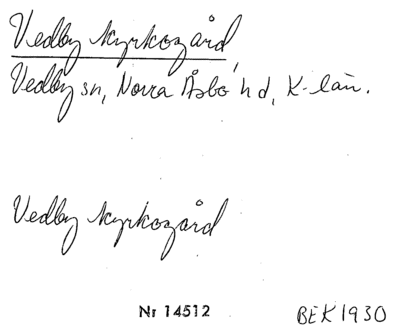 Vedby kyrkogård,
Vedby sn, Norra Åsbo hd, K-län.
Vedby kyrkogård
Nr 14512 BEK 1930